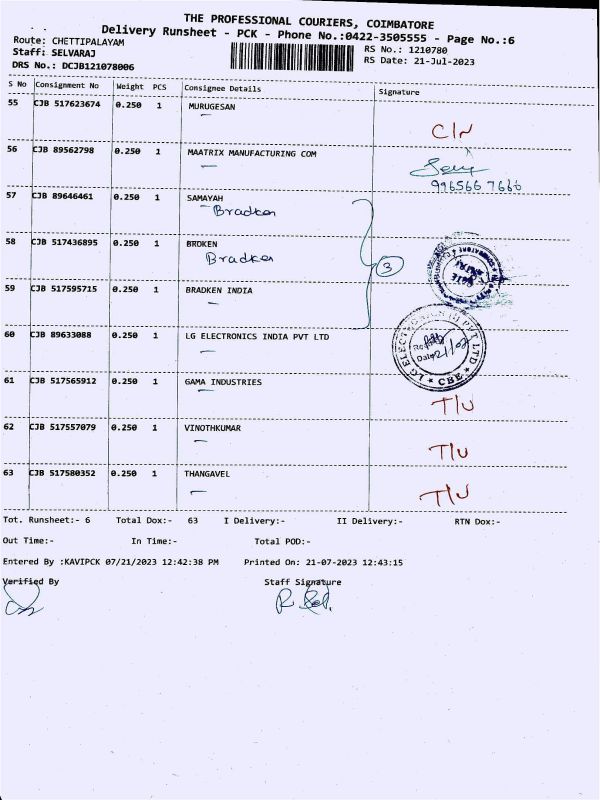 THE PROFESSIONAL COURIERS, COIMBATORE
Delivery Runsheet - PCK - Phone No.:0422-3505555 - Page No.:6
Route: CHETTIPALAYAM
Staff: SELVARAJ
DRS No.: DCJB121078006
RS No.: 1210780
RS Date: 21-Jul-2023
S No Consignment No Weight PCS Consignee Details Signature
55 CJB 517623674 0.250 1 MURUGESAN
C/N
56 CJB 89562798 0.250 1 MAATRIX MANUFACTURING COM
996566 7666
57 CJB 89646461 0.250 1 SAMAYAH
Bradken
58 CJB 517436895 0.250 1 BROKEN
Bradken
3
59 CJB 517595715 0.250 1 BRADKEN INDIA
60 CJB 89633088 0.250 1 LG ELECTRONICS INDIA PVT LTD
LG ELECTRONICS PVT LTD
Date
★ CBE ★
61 CJB 517565912 0.250 1 GAMA INDUSTRIES
T/U
62 CJB 517557079 0.250 1 VINOTHKUMAR
T/U
63 CJB 517580352 0.250 1 THANGAVEL
T/U
Tot. Runsheet:- 6 Total Dox:- 63 I Delivery:- II Delivery:- RTN Dox:-
Out Time:- In Time:- Total POD:-
Entered By :KAVIPCK 07/21/2023 12:42:38 PM Printed On: 21-07-2023 12:43:15
Verified By Staff Signature